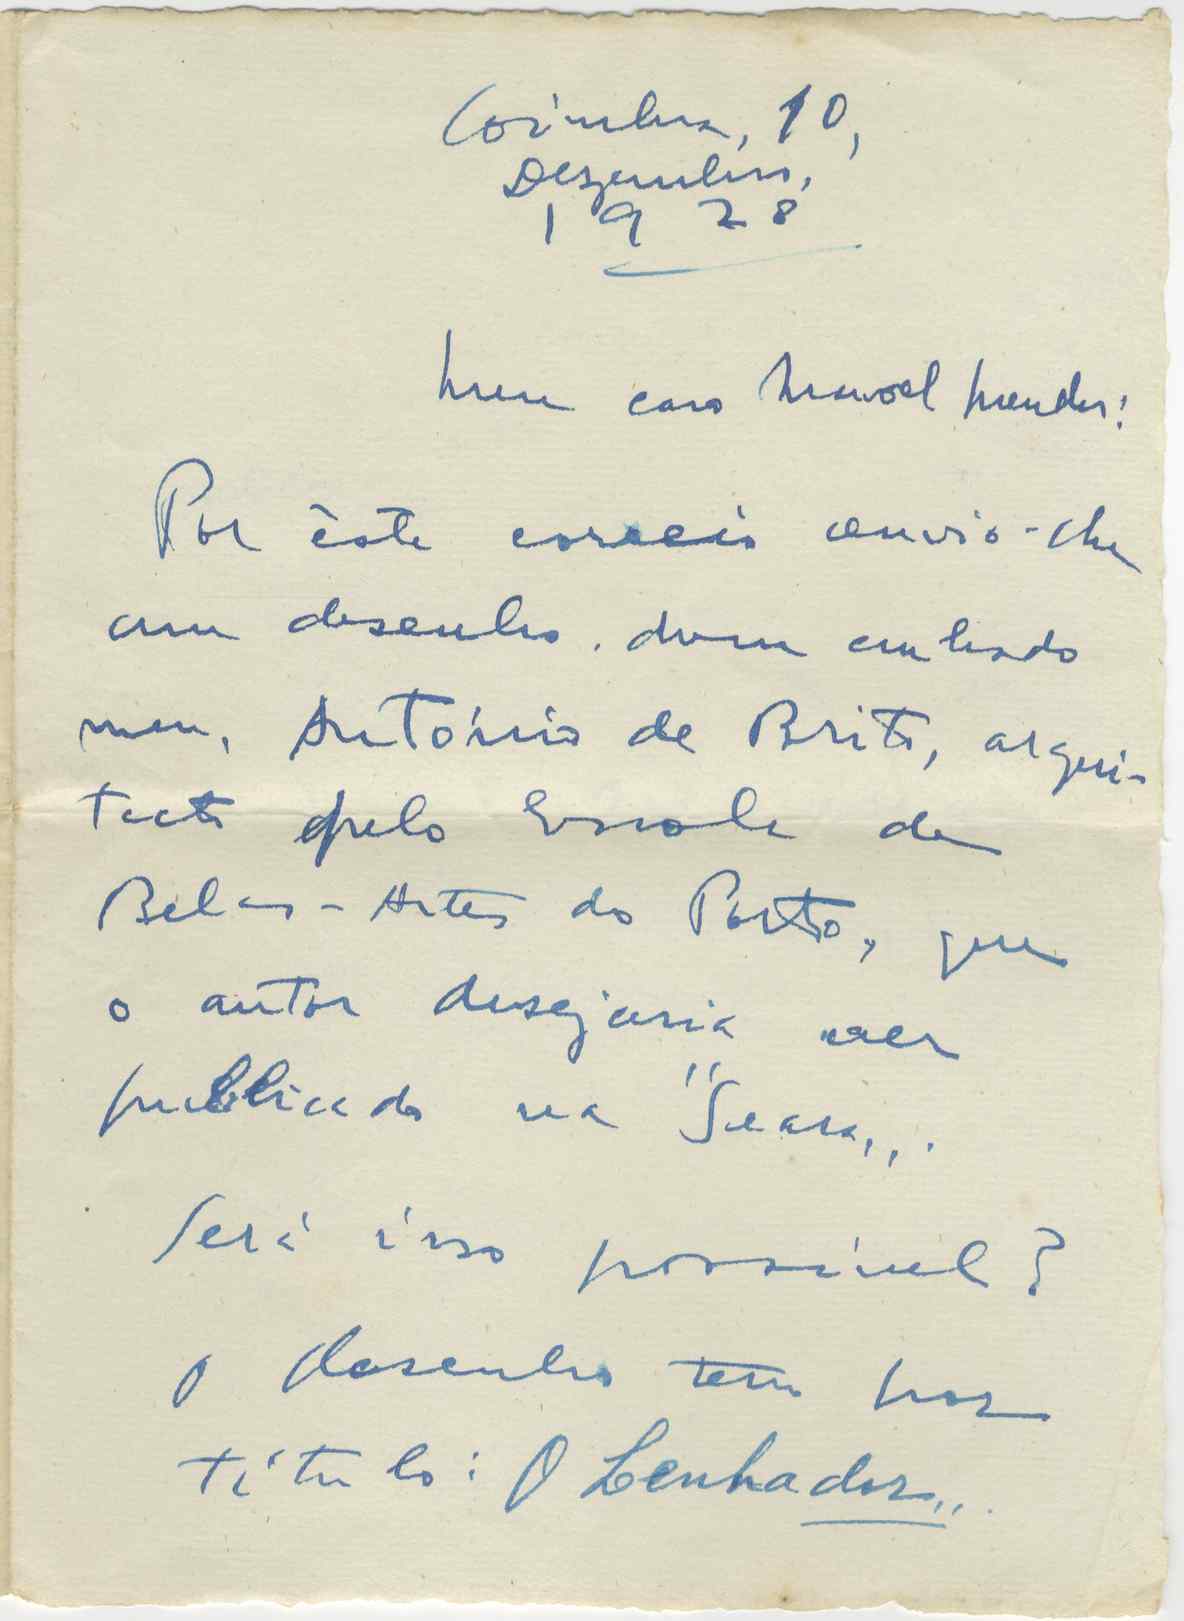 Coimbra, 10,
Dezembro,
1928
Meu caro Manoel Mendes:
Por êste correio envio-lhe
um desenho. dum cunhado
meu, António de Brito, arqui-
tecto pela Escola de
Belas-Artes do Porto, que
o autor desejaria ver
publicado na "Seara,,.
Será isso possível?
O desenho tem por
título: O Lenhador,,.